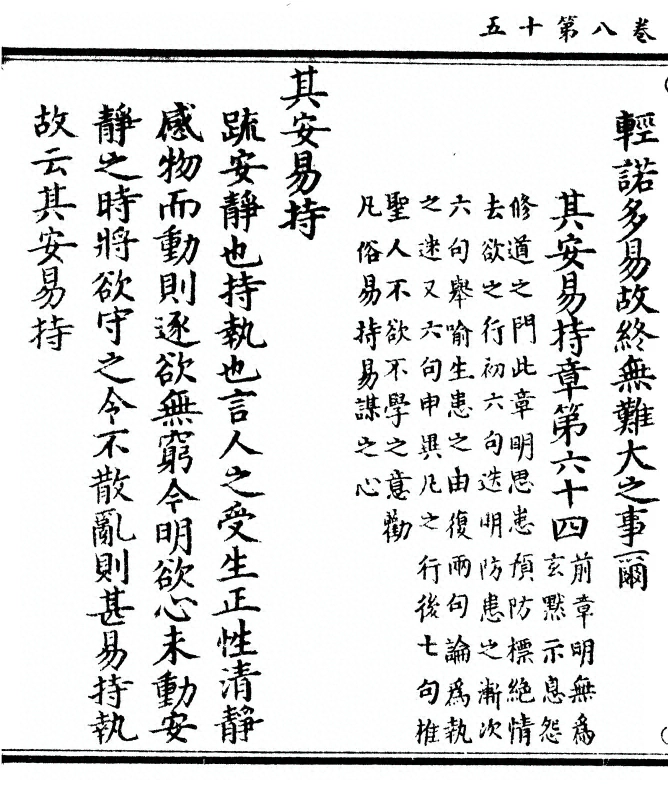 卷八第十五
輕諾多易故終無難大之事爾
其安易持章第六十四
前章明無爲
玄黙示息怨
修道之門此章明思患預防標絕情
去欲之行初六句迭明防患之漸次
六句舉喻生患之由復兩句論爲執
之迷又六句申異凡之行後七句惟
聖人不欲不學之意勸
凡俗易持易謀之心
其安易持
䟽安靜也持執也言人之受生正性清靜
感物而動則逐欲無窮今明欲心未動安
靜之時將欲守之令不散亂則甚易持執
故云其安易持